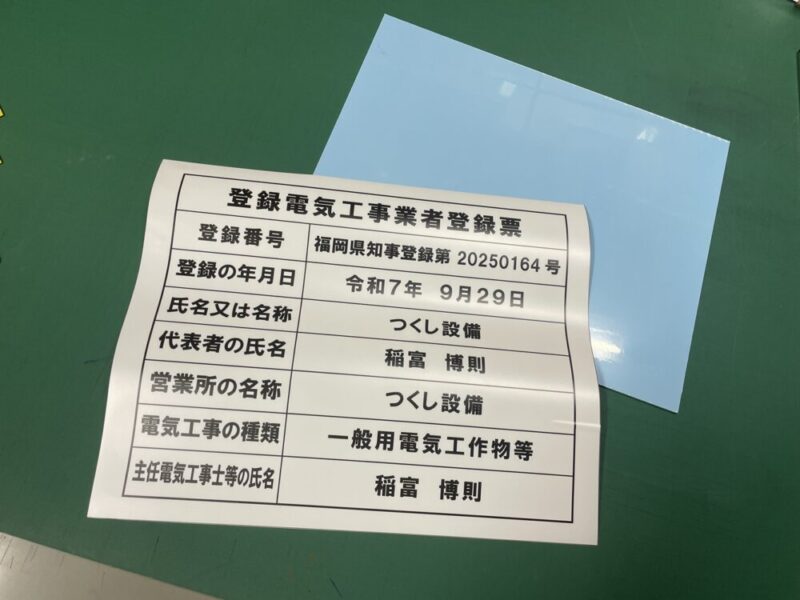 登録電気工事業者登録票
登録番号 福岡県知事登録第 20250164 号
登録の年月日 令和7年 9月29日
氏名又は名称 つくし設備
代表者の氏名 稲富 博則
営業所の名称 つくし設備
電気工事の種類 一般用電気工作物等
主任電気工事士等の氏名 稲富 博則